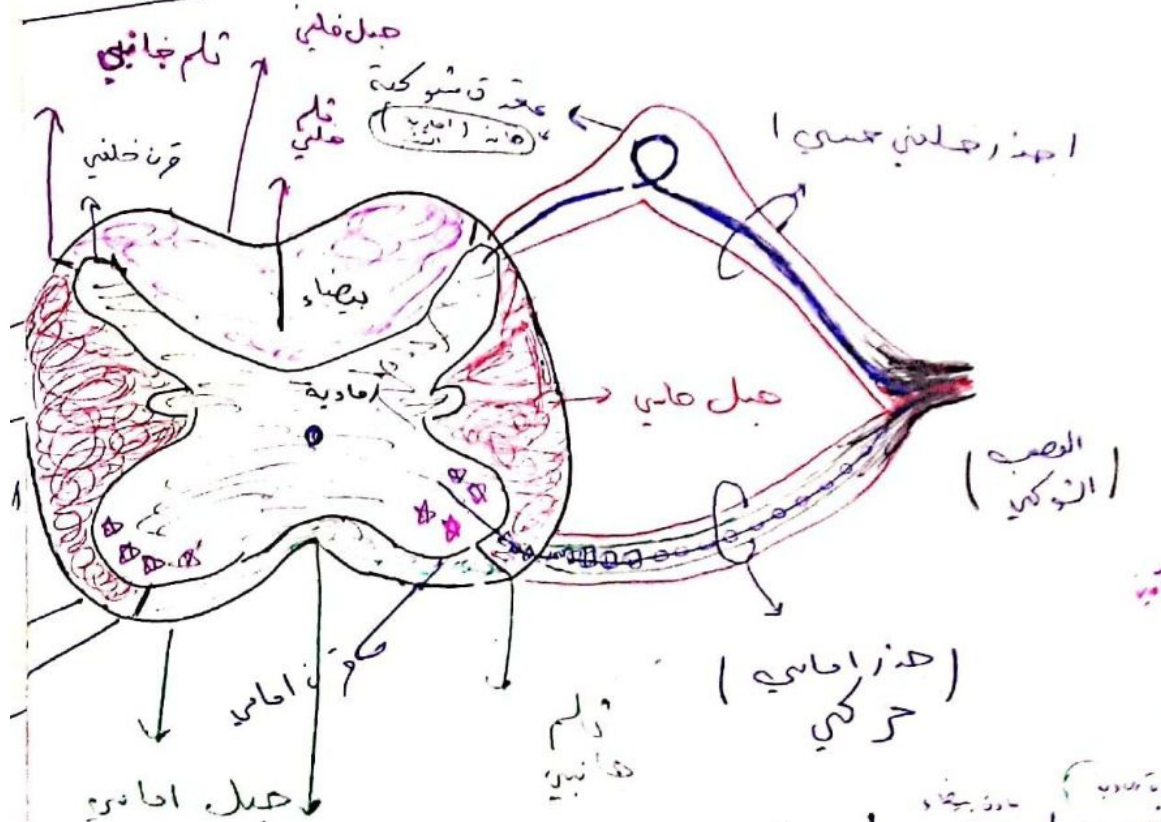 حبل خلفي
ثلم جانبي
ثلم
خلفي
عقدة شوكية
قرن خلفي
(جذر خلفي حسي)
بيضاء
رمادية
حبل جانبي
(العصب
الشوكي)
قرن امامي
(جذر امامي
حركي)
ثلم
جانبي
حبل امامي
مادة بيضاء